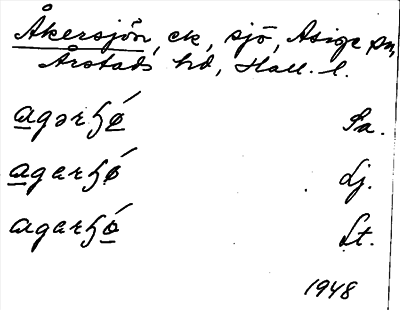 Åkersjön, ek, sjö, Asige sn,
Årstads hd, Hall. l.
agərɧǿ Sa.
agerɧǿ Lj.
agerɧǿ Lt.
1948